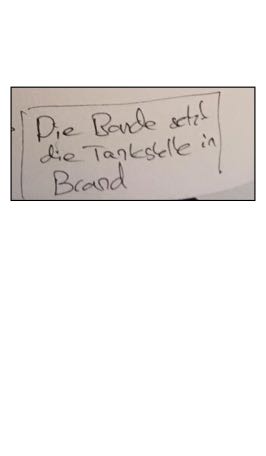 Die Bande setzt
die Tankstelle in
Brand